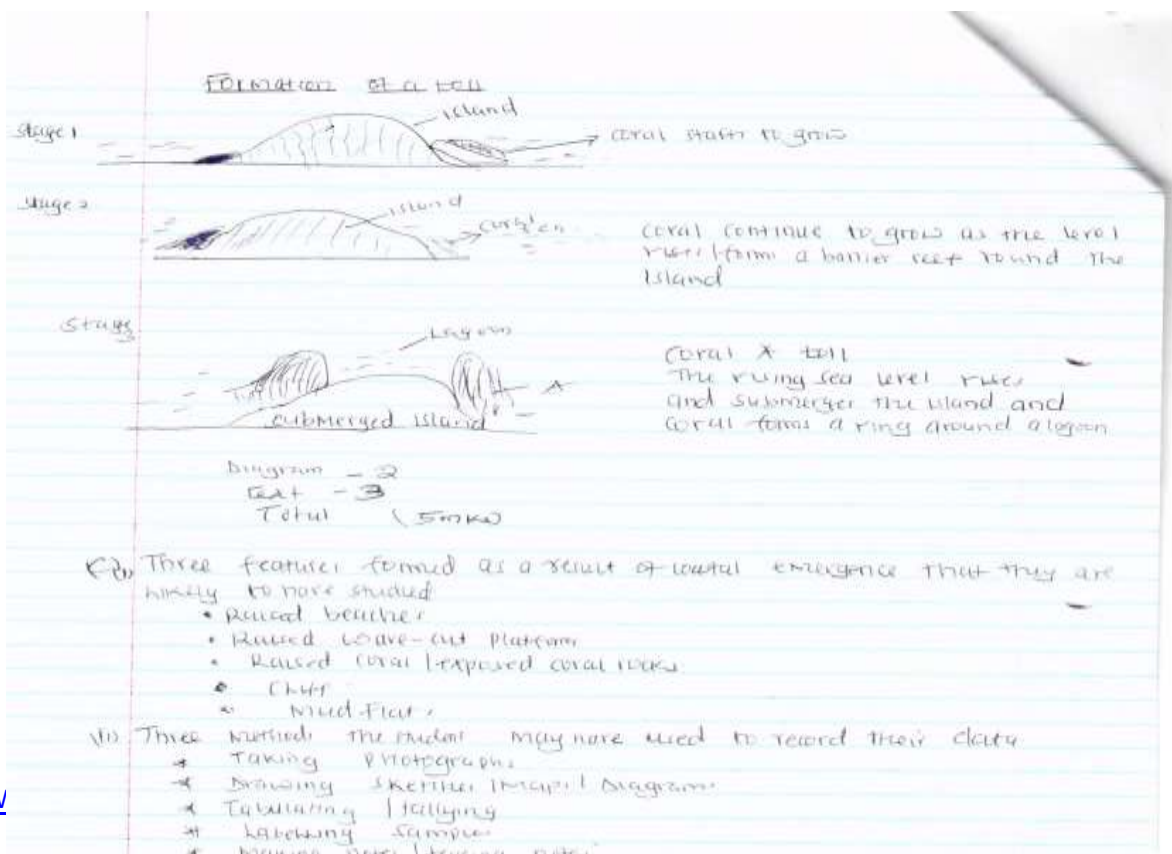 Formation of a toll
Stage 1
island
coral starts to grow
Stage 2
island
coral continue to grow as the level
rises/form a barrier reef round the
Island
Stage 3
Lagoon
A
submerged island
Coral A toll
The rising sea level rises
and submerges the island and
coral forms a ring around a lagoon
Diagram - 2
Text - 3
Total (5mks)
Three features formed as a result of coastal emergence that they are
likely to have studied
• Raised beaches
• Raised wave-cut platform
• Raised coral/exposed coral rocks
• Cliff
• Mud flats
Three methods the student may have used to record their data
* Taking photographs
* Drawing sketches/maps/Diagrams
* Tabulating/tallying
* Labelling samples
* Making notes/taking notes